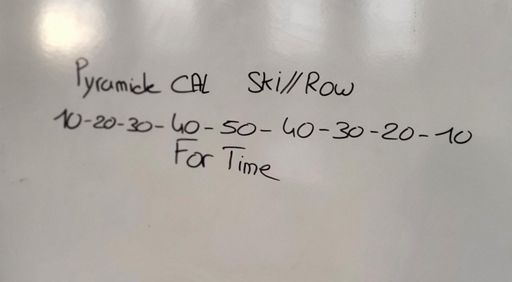 Pyramide CAL Ski//Row
10-20-30-40-50-40-30-20-10
For Time